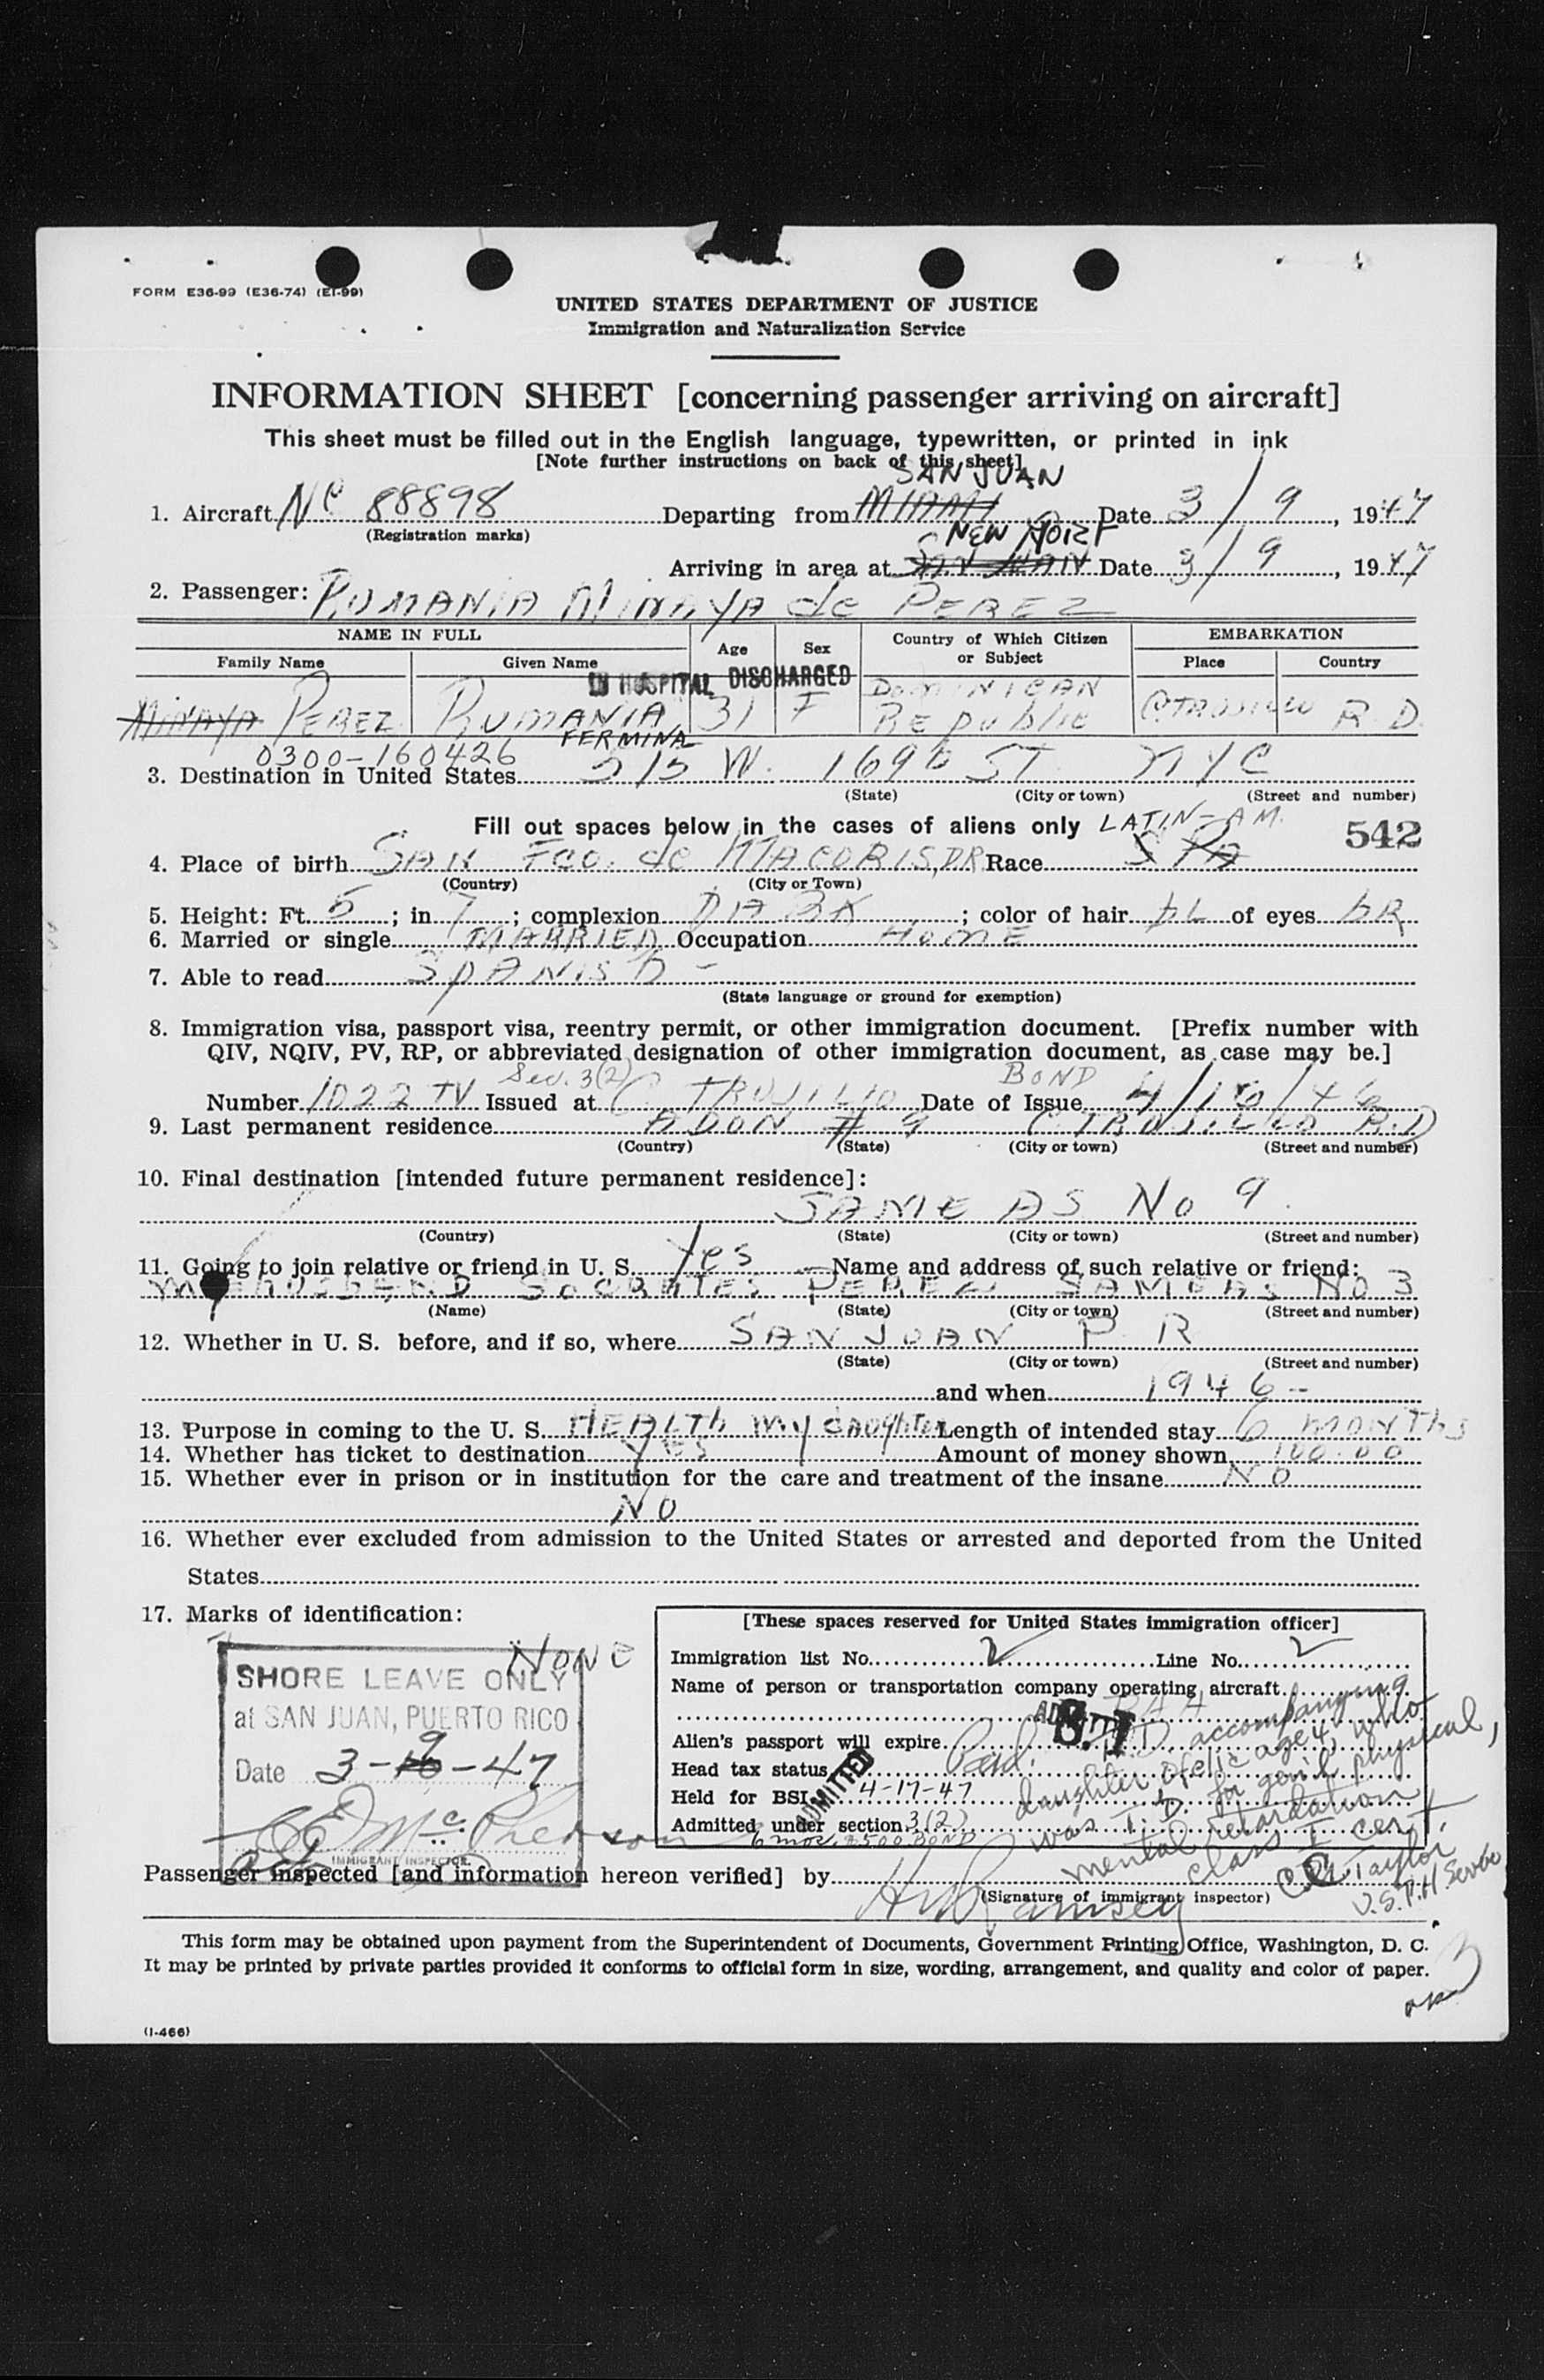 FORM E36-99 (E36-74) (EI-99)
UNITED STATES DEPARTMENT OF JUSTICE
Immigration and Naturalization Service
INFORMATION SHEET [concerning passenger arriving on aircraft]
This sheet must be filled out in the English language, typewritten, or printed in ink
[Note further instructions on back of this sheet]
SAN JUAN
1. Aircraft NC 88898 Departing from MIAMI Date 3/9, 1947
(Registration marks)
NEW YORK
Arriving in area at SAN JUAN Date 3/9, 1947
2. Passenger: RUMANIA MINAYA de PEREZ
NAME IN FULL Age Sex Country of Which Citizen or Subject EMBARKATION
Family Name Given Name Place Country
IN HOSPITAL DISCHARGED
MINAYA PEREZ RUMANIA 31 F DOMINICAN REpublic C. TRUJILLO R.D.
FERMINA
0300-160426
3. Destination in United States 515 W. 169th ST. NYC
(State) (City or town) (Street and number)
Fill out spaces below in the cases of aliens only LATIN-AM. 542
4. Place of birth SAN Fco. de MACORIS, DR. Race SPA
(Country) (City or Town)
5. Height: Ft. 5; in 7; complexion DARK; color of hair bL of eyes bR
6. Married or single MARRIED Occupation HOME
7. Able to read SPANISh -
(State language or ground for exemption)
8. Immigration visa, passport visa, reentry permit, or other immigration document. [Prefix number with
QIV, NQIV, PV, RP, or abbreviated designation of other immigration document, as case may be.]
Sec. 3(2) BOND
Number 1022 TV Issued at C. TRUJILLO Date of Issue 4/16/46
9. Last permanent residence ADON # 9 C. TRUJILLO R.D
(Country) (State) (City or town) (Street and number)
10. Final destination [intended future permanent residence]:
SAME AS No 9.
(Country) (State) (City or town) (Street and number)
11. Going to join relative or friend in U. S. Yes Name and address of such relative or friend:
MY HUSBEND SOCRATES PEREZ SAME AS NO 3
(Name) (State) (City or town) (Street and number)
12. Whether in U. S. before, and if so, where SAN JUAN P. R
(State) (City or town) (Street and number)
and when 1946-
13. Purpose in coming to the U. S. HEALTh My daughter Length of intended stay 6 MONThS
14. Whether has ticket to destination YES Amount of money shown 100.00
15. Whether ever in prison or in institution for the care and treatment of the insane NO
NO
16. Whether ever excluded from admission to the United States or arrested and deported from the United
States
17. Marks of identification:
NONE
SHORE LEAVE ONLY
at SAN JUAN, PUERTO RICO
Date 3-9-47
McPherson
IMMIGRANT INSPECTOR
[These spaces reserved for United States immigration officer]
Immigration list No. 2 Line No. 2
Name of person or transportation company operating aircraft
PAA
S.I
Alien's passport will expire
Head tax status Paid.
Held for BSI 4-17-47
ADMITTED
Admitted under section 3(2)
6 mos. $500 BOND
T.D. accompanying
daughter Felic age 4, who
was T.D. for gen'l physical,
mental retardation
class I cert
C. M. Taylor
U.S.P.H. Service
Passenger inspected [and information hereon verified] by HW Ramsey
(Signature of immigrant inspector)
This form may be obtained upon payment from the Superintendent of Documents, Government Printing Office, Washington, D. C.
It may be printed by private parties provided it conforms to official form in size, wording, arrangement, and quality and color of paper.
(I-466)